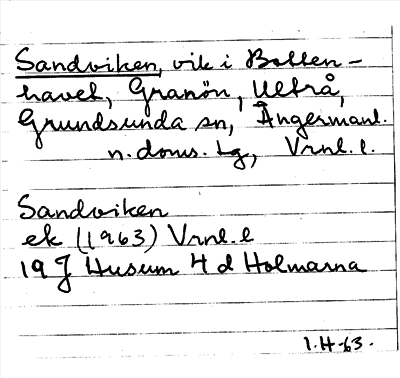 Sandviken, vik i Botten-
havet, Granön, Ulfrå,
Grundsunda sn, Ångermanl.
n. doms. tg, Vrnl. l.
Sandviken
ek (1963) Vrnl. l
19 J Husum 4 d Holmarna
1.4-63.